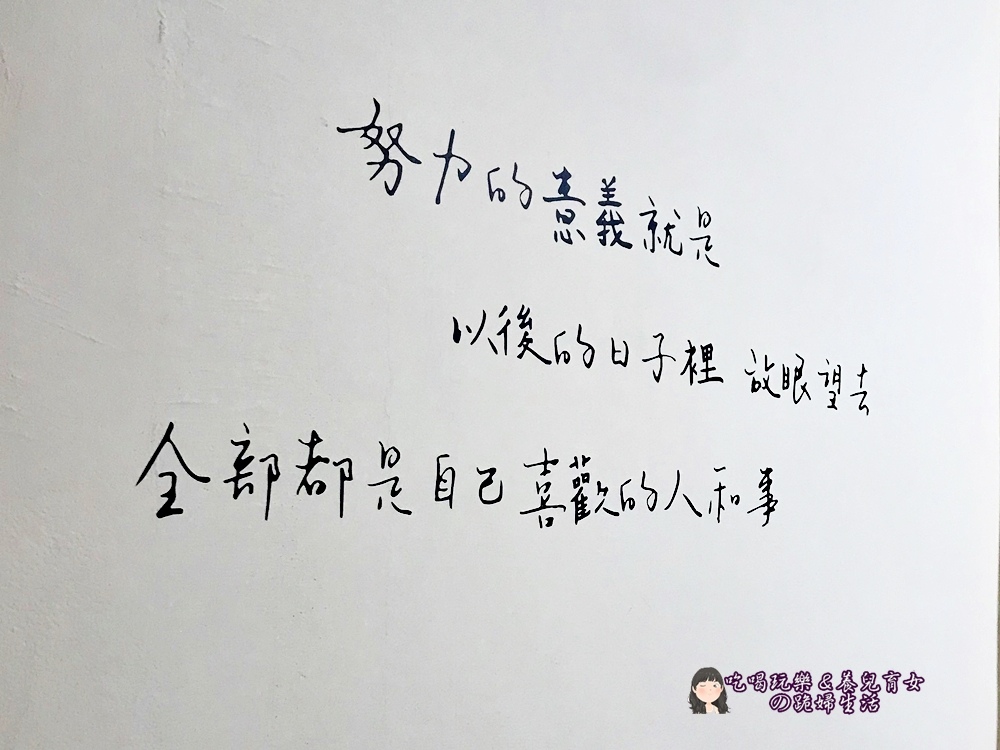 努力的意義就是
以後的日子裡 放眼望去
全部都是自己喜歡的人和事
吃喝玩樂&養兒育女
の跪婦生活